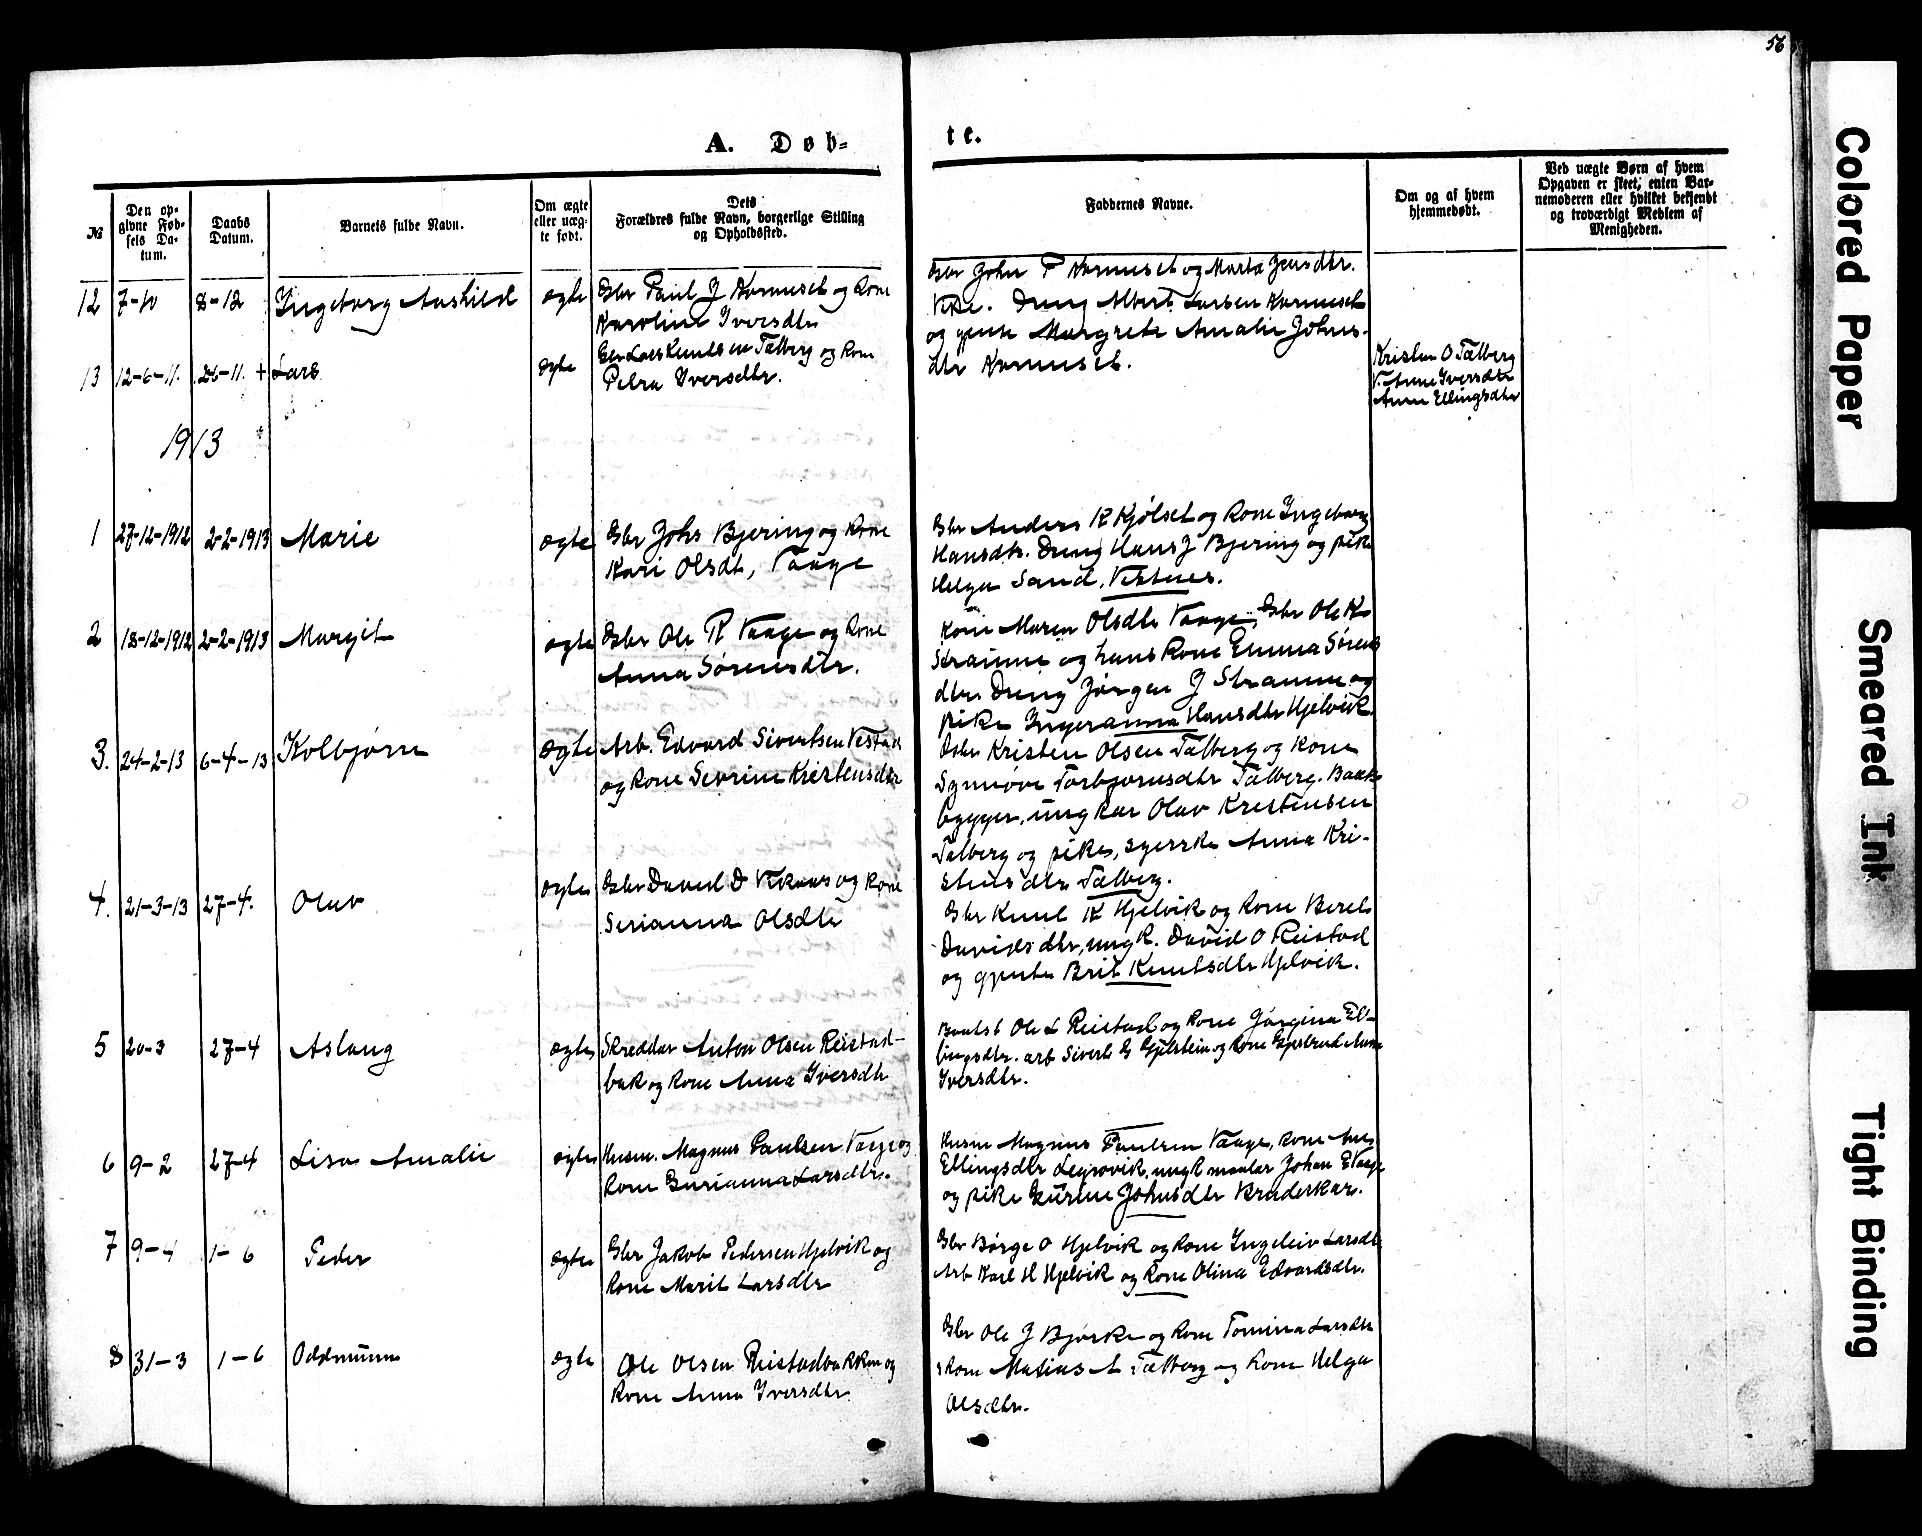 56
A. Døb=
te.
№
Den op-
givne Fød-
sels Da-
tum.
Daabs
Datum.
Barnets fulde Navn.
Om ægte
eller uæg-
te født.
Dets
Forældres fulde Navn, borgerlige Stilling
og Opholdssted.
Faddernes Navne.
Om og af hvem
hjemmedøbt.
Ved uægte Børn af hvem
Opgaven er skeet, enten Bar-
nemoderen eller hvilket bekjendt
og troværdigt Medlem af
Menigheden.
12 7-10 8-12 Ingeborg Aashild ægte Gbr Paul J Kormeset og Kone
Karoline Iversdtr
Gbr John P Kormeset og Marta Jensdtr.
Vike. Dreng Albert Larsen Kormeset
og gjente Margrete Amalie Johns-
dtr Kormeset.
13 12-6-11. 26-11. + Lars ægte Gbr Lars Knutsen Talberg og Kone
Petra Iversdtr.
Kristen O Talberg
Anne Iversdtr
Anne Ellingsdtr
1913
1 27-12-1912 2-2-1913 Marie ægte Gbr Johs Bjering og Kone
Kari Olsdt, Vaage
Gbr Anders K Kjølset og Kone Ingeborg
Hansdtr. Dreng Hans J Bjering og pike
Helga Sand, Vestnes.
2 18-12-1912 2-2-1913 Margit ægte Gbr Ole P Vaage og Kone
Anna Sørensdtr.
Kone Maren Olsdtr Vaage, Gbr Ole K
Stramme og hans Kone Emma Sørens
dtr. Dreng Jørgen J Stramme og
pike Ingeranna Hansdtr Hjelvik
3. 24-2-13 6-4-13 Kolbjørn ægte Arb. Edvard Sivertsen Vestad
og Kone Sevrine Kristensdtr
Gbr Kristen Olsen Talberg og Kone
Synnøve Torbjørnsdtr Talberg. Baat
bygger, ungkar Olav Kristensen
Talberg og pike, syerske Anna Kri-
stensdtr Talberg.
4. 21-3-13 27-4. Olav ægte Gbr David D Viknes og Kone
Serianna Olsdtr
Gbr Knut K Hjelvik og Kone Beret
Davidsdtr, ungk. David O Reistad
og gjente Brit Knutsdtr Hjelvik.
5 20-3 27-4 Aslaug ægte Skreddar Anton Olsen Reistad-
bak og Kone Anna Iversdtr
Baatsb Ole L Reistad og Kone Jørgina El-
lingsdtr. arb Sivert G Gjelstein og Kone Gjertrud Anne
Iversdtr.
6 9-2 27-4 Lisa Amalie ægte Husm. Magnus Paulsen Vaage og
Kone Gurianna Larsdtr.
Husm Magnus Paulsen Vaage, Kone Ane
Ellingsdtr Legrovik, ungk maalar Johan E Vaage
og pike Gurine Johnsdtr Bruderkar.
7 9-4 1-6 Peder ægte Gbr Jakob Pedersen Hjelvik og
Kone Marit Larsdtr
Gbr Børge O Hjelvik og Kone Ingeleiv Larsdtr
Arb Karl H Hjelvik og Kone Olina Edvardsdtr.
8 31-3 1-6 Oddmunn ægte Ole Olsen Reistadbakken og
Kone Anna Iversdtr
Gbr Ole J Bjørke og Kone Tomina Larsdtr
Matias A Talberg og Kone Helga
Olsdtr.
Colored Paper
Smeared Ink
Tight Binding